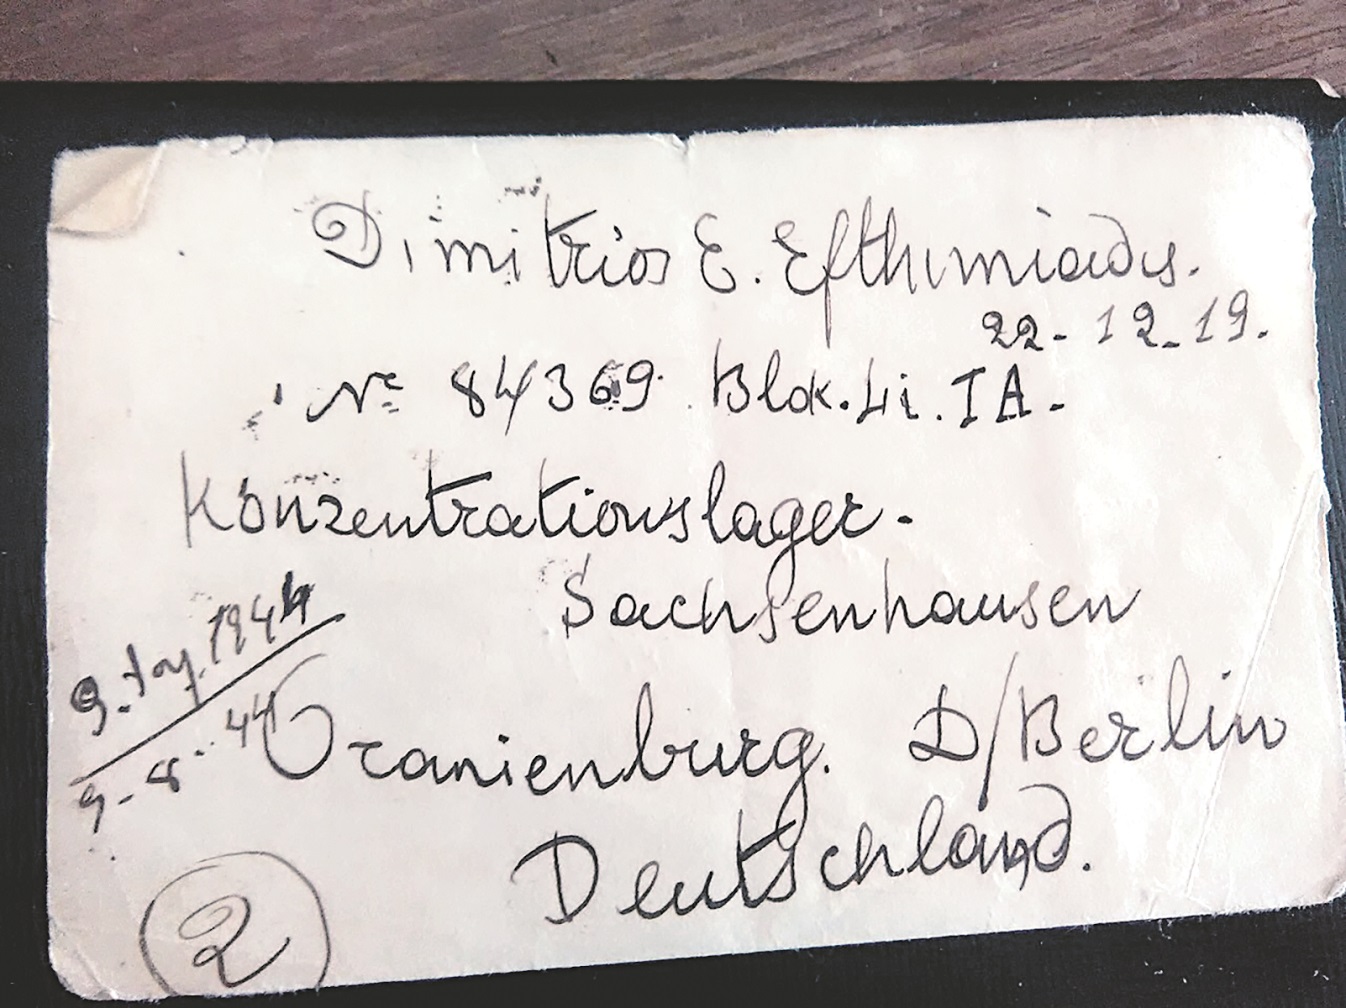 Dimitrios E. Efthimiadis.
22-12-19.
Nr 84369. Blok. 4i. IA-
Konzentrationslager.
Sachsenhausen
9. 1944
9-8-44
Oranienburg. D/Berlin
Deutschland.
2